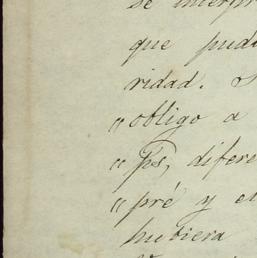 se interpr
que pudi
ridad. S
"obligo a
" ps, difere
" pré y en
hubiera